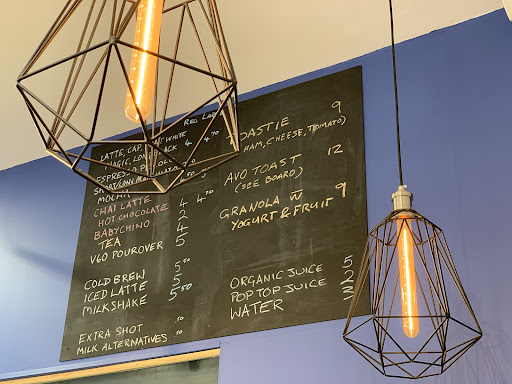 RED LARGE
LATTE, CAP, FLAT WHITE 4 4.70
MAGIC, LONG BLACK 4
ESPRESSO
MOCHA
CHAI LATTE 4 4.70
HOT CHOCOLATE 4
BABYCHINO 2
TEA 4
V60 POUROVER 5
COLD BREW 5.50
ICED LATTE 5
MILKSHAKE 5.50
EXTRA SHOT .50
MILK ALTERNATIVES .50
TOASTIE 9
HAM, CHEESE, TOMATO)
AVO TOAST 12
(SEE BOARD)
GRANOLA W 9
YOGURT & FRUIT
ORGANIC JUICE 5
POP TOP JUICE 2
WATER 3